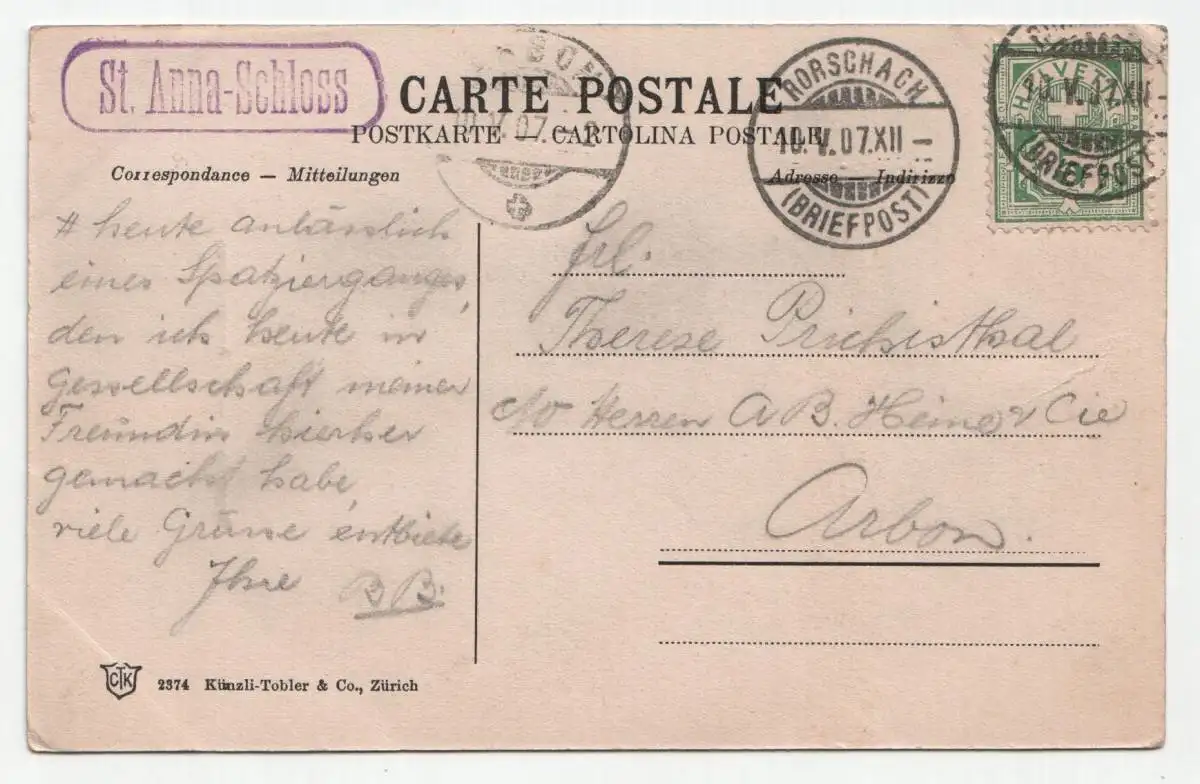 St. Anna-Schloss
CARTE POSTALE
POSTKARTE — CARTOLINA POSTALE
Correspondance — Mitteilungen
Adresse — Indirizzo
RORSCHACH
10. V. 07. XII —
(BRIEFPOST)
10. V. 07.
HELVETIA
V. 07. XII —
(BRIEFPOST)
# heute anlässlich
eines Spatzierganges,
den ich heute in
Gessellschaft meiner
Freundin hierher
gemacht habe,
viele Grüsse entbiete
Ihre BB.
Frl.
Therese
c/o Herren A B. Heine & Cie
Arbon.
CTK
2374 Künzli-Tobler & Co., Zürich